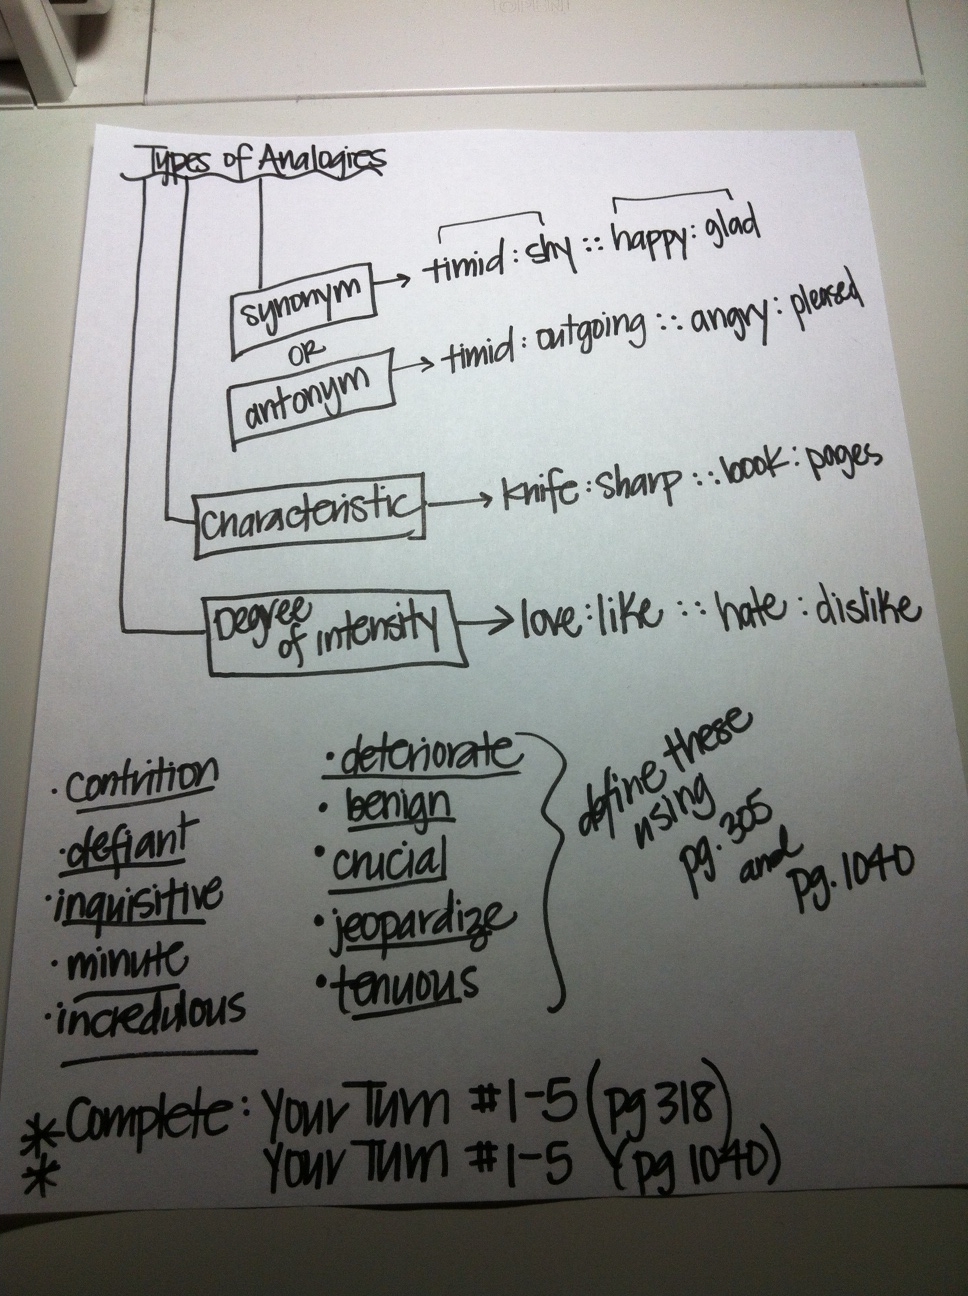 Types of Analogies
synonym → timid : shy :: happy : glad
OR
antonym → timid : outgoing :: angry : pleased
characteristic → knife : sharp :: book : pages
Degree of intensity → love : like :: hate : dislike
· contrition
· defiant
· inquisitive
· minute
· incredulous
· deteriorate
· benign
· crucial
· jeopardize
· tenuous
define these
using
pg. 305
and
pg. 1040
* Complete: Your Turn #1-5 (pg 318)
* Your Turn #1-5 (pg 1040)